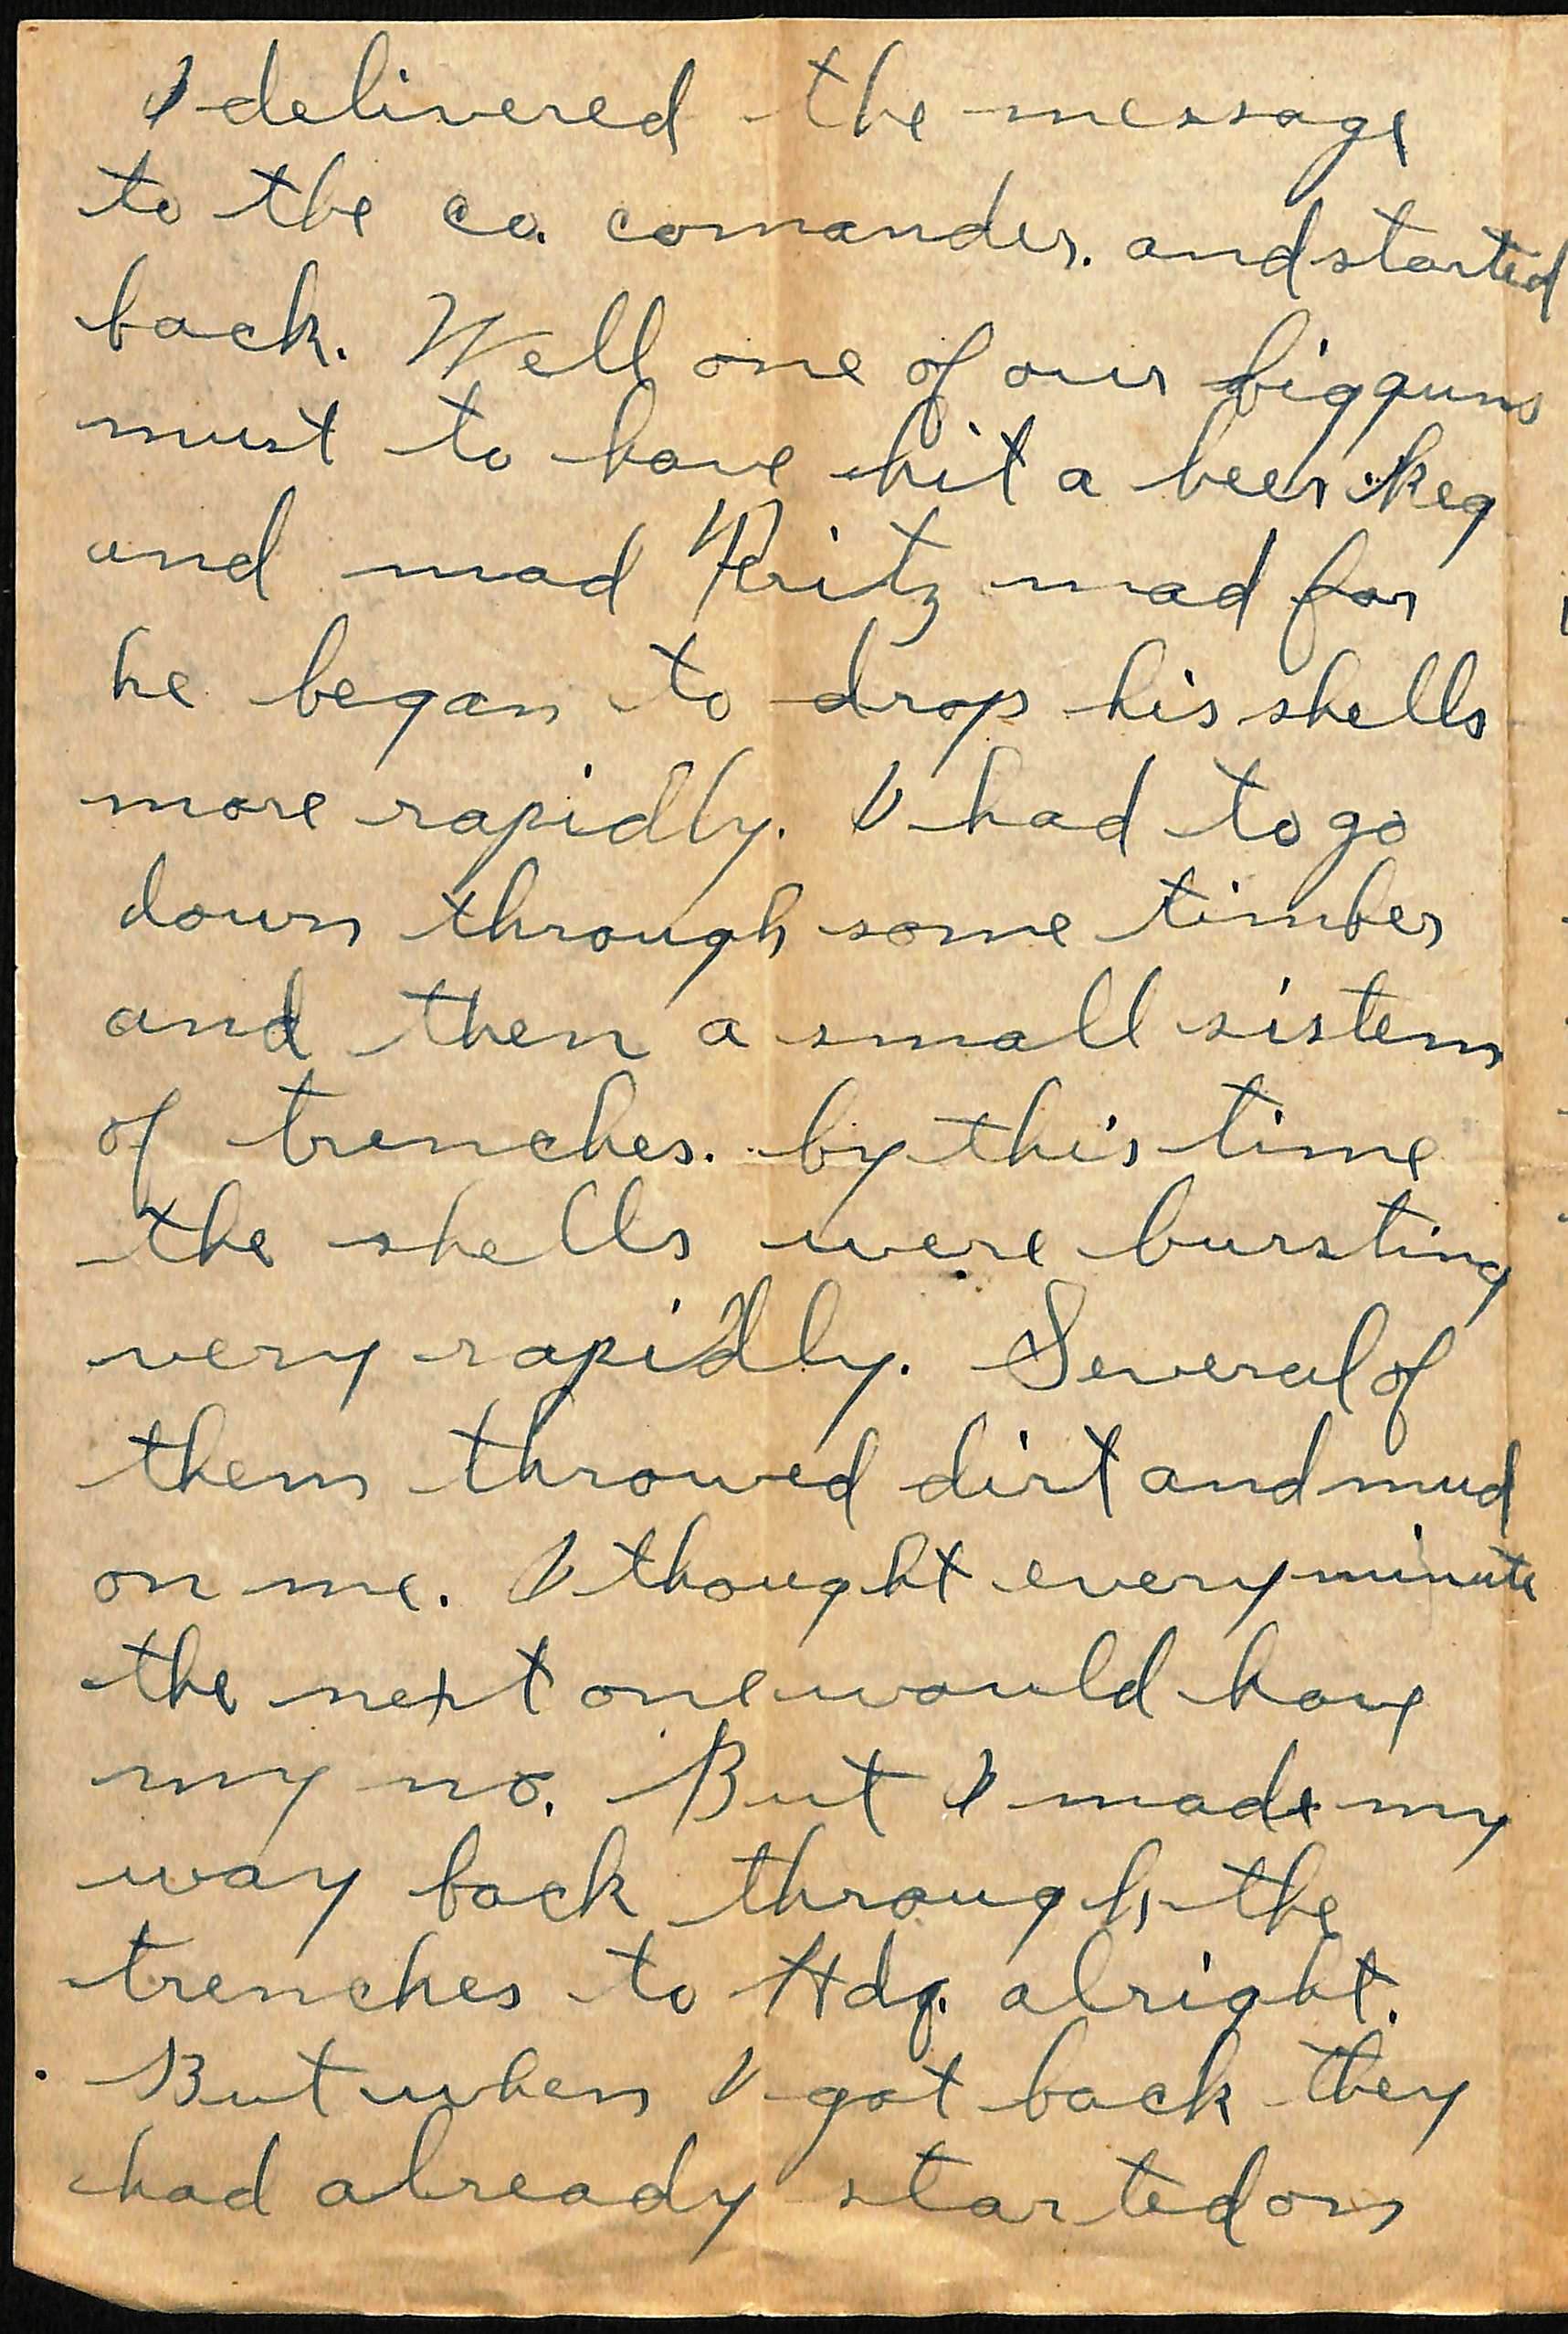 I delivered the message
to the co. comander. and started
back. Well one of our big guns
must to have hit a beer keg
and mad Fritz mad for
he began to drop his shells
more rapidly. I had to go
down through some timber
and then a small sistem
of trenches. by this time
the shells were bursting
very rapidly. Several of
them throwed dirt and mud
on me. I thought every minute
the next one would have
my no. But I made my
way back through the
trenches to Hdq. alright.
But when I got back they
had already started on